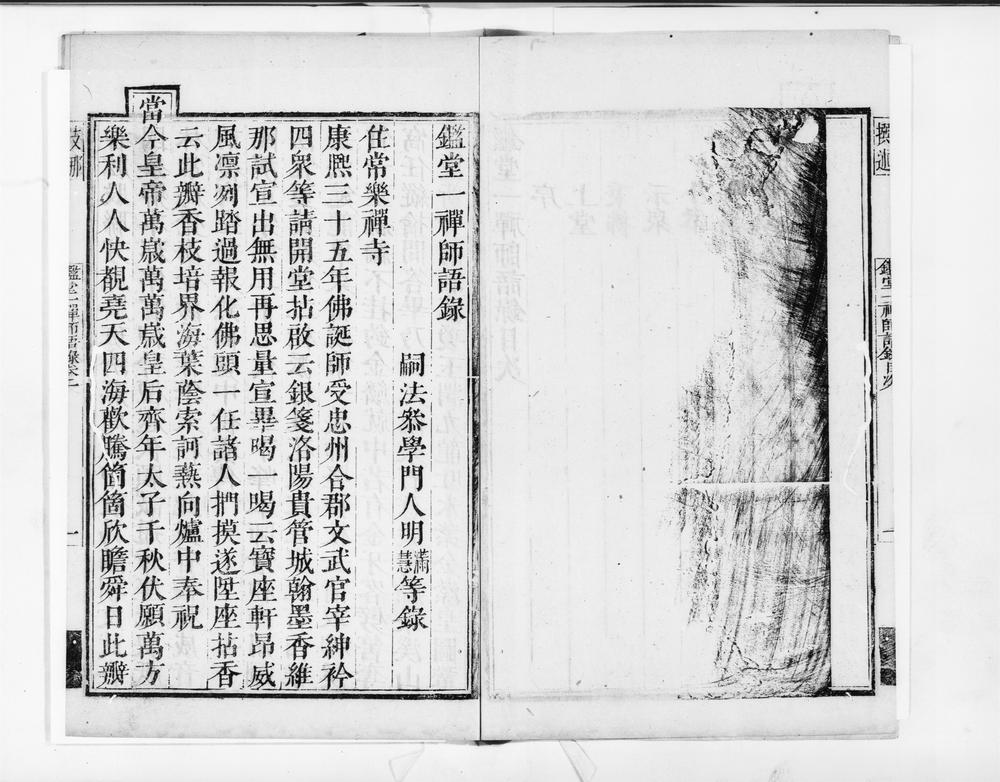 鑑堂一禪師語錄目次
一
鑑堂一禪師語錄
嗣法叅學門人明慧瀟等錄
住常樂禪寺
康熈三十五年佛誕師受忠州合郡文武官宰紳衿
四衆等請開堂拈啟云銀箋洛陽貴管城翰墨香維
那試宣出無用再思量宣畢喝一喝云寶座軒昂威
風凛冽踏過報化佛頭一任諸人捫摸遂陞座拈香
云此瓣香枝培界海葉蔭索訶爇向爐中奉祝
當今皇帝萬歲萬萬歲皇后齊年太子千秋伏願萬方
樂利人人快覩堯天四海歡騰箇箇欣瞻舜日此瓣
鑑堂一禪師語錄卷一
一